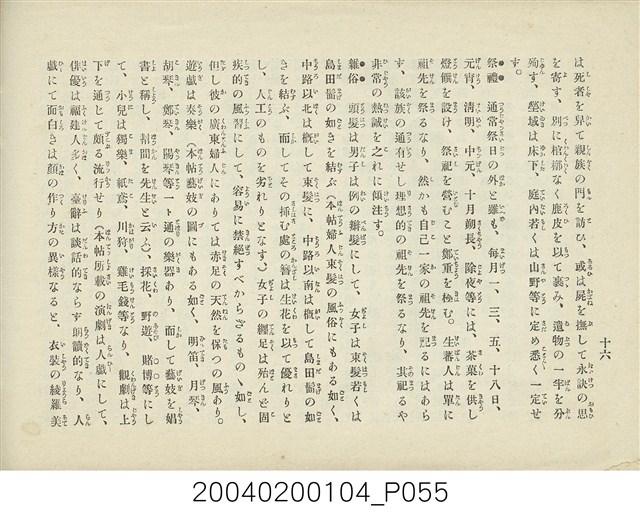 十六
は死者を舁て親族の門を訪ひ、或は屍を撫して永訣の思
を寄す、別に棺槨なく鹿皮を以て裹み、遺物の一半を分
殉す、塋域は床下、庭內若くは山野等に定め悉く一定せ
す。
祭禮 通常祭日の外と雖も、每月一、三、五、十八日、
元宵、淸明、中元、十月朔長、除夜等には、茶菓を供し
燈儷を設け、祭祀を營むこと鄭重を極む。生蕃人は單に
祖先を祭るなり、然かも自己一家の祖先を記るにはあら
す、該族の通有せし理想的の祖先を祭るなり、其祀るや
非常の熱誠を之れに傾注す。
雜俗 頭髮は男子は例の辮髮にして、女子は束髮若くは
島田髷の如きを結ぶ(本帖婦人束髮の風俗にもある如く、
中路以北は槪して束髮に、中路以南は槪して島田髷の如
きを結ぶ、而してその揷む處の簪は生花を以て優れりと
し、人工のものを劣れりとなす。)女子の纏足は殆んど固
疾的の風習にして、容易に禁絕すべからざるもの丶如し、
但し彼の廣東婦人にありては赤足の天然を保つの風あり。
遊戲は奏樂(本帖藝妓の圖にもある如く、明笛、月琴、
胡琴、鄭琴、陽琴等一ト通の樂器あり、而して藝妓を娼
書と稱し、幇間を先生と云ふ)、採花、野遊、賭博等にし
て、小兒は獨樂、紙鳶、川狩、雞毛錢等なり、觀劇は上
下を通じて頗る流行せり(本帖所載の演劇は人戲にして、
俳優は福建人多く、臺辭は談話的ならす朗讀的なり、人
戲にて面白きは顏の作り方の異樣なると、衣裝の綾羅美
20040200104_P055